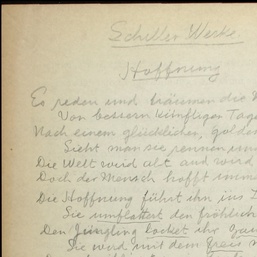 Schiller Werke
Hoffnung
Es reden und träumen die M
Von bessern künftigen Tage
Nach einem glücklichen, golde
Sieht man sie rennen und
Die Welt wird alt und wird
Doch der Mensch hofft imme
Die Hoffnung führt ihn ins L
Sie umflattert den fröhlich
Den Jüngling locket ihr
Sie wird mit dem Greis